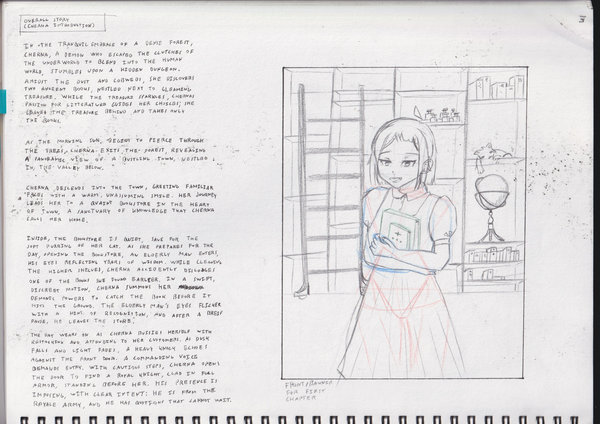 OVERALL STORY
(CHERNA INTRODUCTION)
IN THE TRANQUIL SOLITUDE OF A DENSE FOREST,
CHERNA, A DEMON WHO ESCAPED THE CLUTCHES OF
THE UNDERWORLD TO BLEND INTO THE HUMAN
WORLD, STUMBLES UPON A HIDDEN DUNGEON.
AMIDST THE DUST AND COBWEBS, SHE DISCOVERS
TWO ANCIENT BOOKS, NESTLED NEXT TO GLEAMING
TREASURE. WHILE THE TREASURE SPARKLES, CHERNAS
PASSION FOR LITERATURE GUIDES HER CHOICES; SHE
LEAVES THE TREASURE BEHIND AND TAKES ONLY
THE BOOKS.
AS THE MORNING SUN, BEGINS TO PIERCE THROUGH
THE TREES, CHERNA EXITS THE FOREST, REVEALING
A PANORAMIC VIEW OF A BUSTLING TOWN, NESTLED
IN THE VALLEY BELOW.
CHERNA DESCENDS INTO THE TOWN, GREETING FAMILIAR
FACES WITH A WARM, UNASSUMING SMILE. HER JOURNEY
LEADS HER TO A QUAINT BOOKSTORE IN THE HEART
OF TOWN, A SANCTUARY OF KNOWLEDGE THAT CHERNA
CALLS HER HOME.
INSIDE, THE BOOKSTORE IS QUIET, SAVE FOR THE
SOFT PURRING OF HER CAT. AS SHE PREPARES FOR THE
DAY, OPENING THE BOOKSTORE, AN ELDERLY MAN ENTERS,
HIS EYES REFLECTING YEARS OF WISDOM. WHILE CLEANING
THE HIGHER SHELVES, CHERNA ACCIDENTLY DISLODGES
ONE OF THE BOOKS SHE FOUND EARLIER. IN A SWIFT,
DISCREET MOTION, CHERNA SUMMONS HER
DEMONIC POWERS TO CATCH THE BOOK BEFORE IT
HITS THE GROUND. THE ELDERLY MAN'S EYES FLICKER
WITH A HINT OF RECOGNITION, AND AFTER A BRIEF
PAUSE, HE LEAVES THE STORE.
THE DAY WEARS ON AS CHERNA BUSIES HERSELF WITH
RESTOCKING AND ATTENDING TO HER CUSTOMERS. AS DUSK
FALLS AND LIGHT FADES, A HEAVY KNOCK ECHOES
AGAINST THE FRONT DOOR. A COMMANDING VOICE
DEMANDS ENTRY. WITH CAUTIOUS STEPS, CHERNA OPENS
THE DOOR TO FIND A ROYAL KNIGHT, CLAD IN FULL
ARMOR, STANDING BEFORE HER. HIS PRESENCE IS
IMPOSING, WITH CLEAR INTENT: HE IS FROM THE
ROYALE ARMY, AND HE HAS QUESTIONS THAT CANNOT WAIT.
FRONT/BANNER
FOR FIRST
CHAPTER